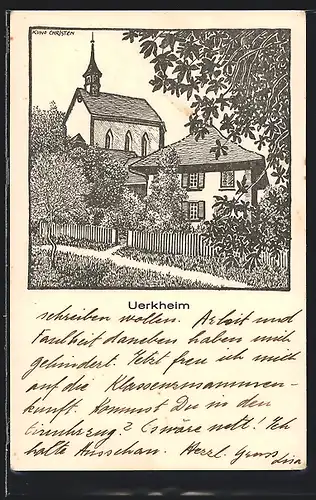 KUNO CHRISTEN
Uerkheim
schreiben wollen. Arbeit und
Faulheit daneben haben mich
gehindert. Jetzt freu ich mich
auf die Klassenzusammen-
kunft. Kommst Du in den
Einuhrzug? Es wäre nett! Ich
halte Ausschau. Herzl. Gruss
Lisa